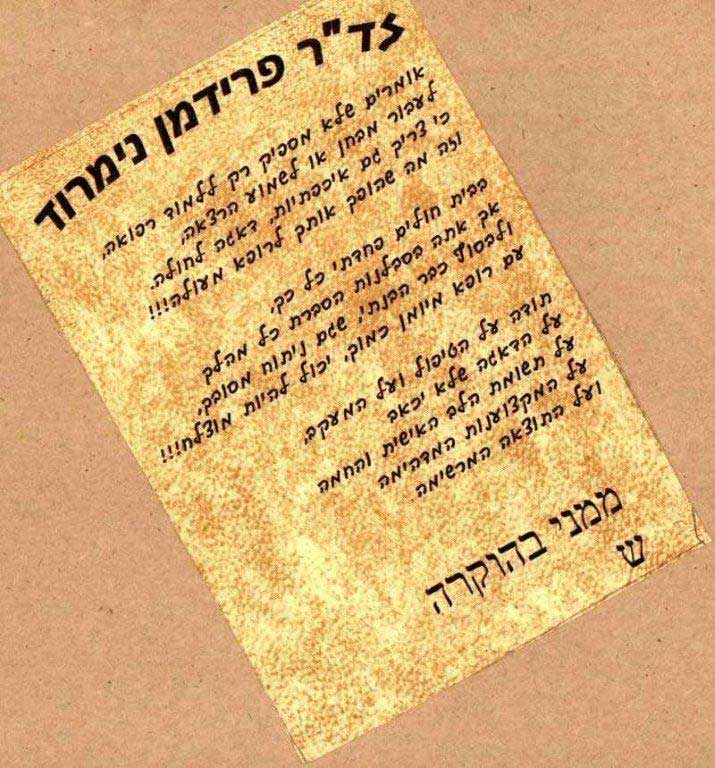 לד"ר פרידמן נימרוד
אומרים שלא מספיק רק ללמוד רפואה,
לעבור מבחן או לשמוע הרצאה,
כי צריך גם איכפתיות, דאגה לחולה.
וזה מה שהופך אותך לרופא מעולה!!!
בבית חולים פחדתי כל כך,
אך אתה בסבלנות הסברת כל מהלך
ולבסוף כבר הבנתי, שגם ניתוח מסובך,
עם רופא מיומן כמוך, יכול להיות מוצלח!!!
תודה על הטיפול ועל המעקב,
על הדאגה שלא יכאב
על תשומת הלב האישית והחמה
על המקצוענות המדהימה
ועל התוצאה המרשימה
ממני בהוקרה
ש